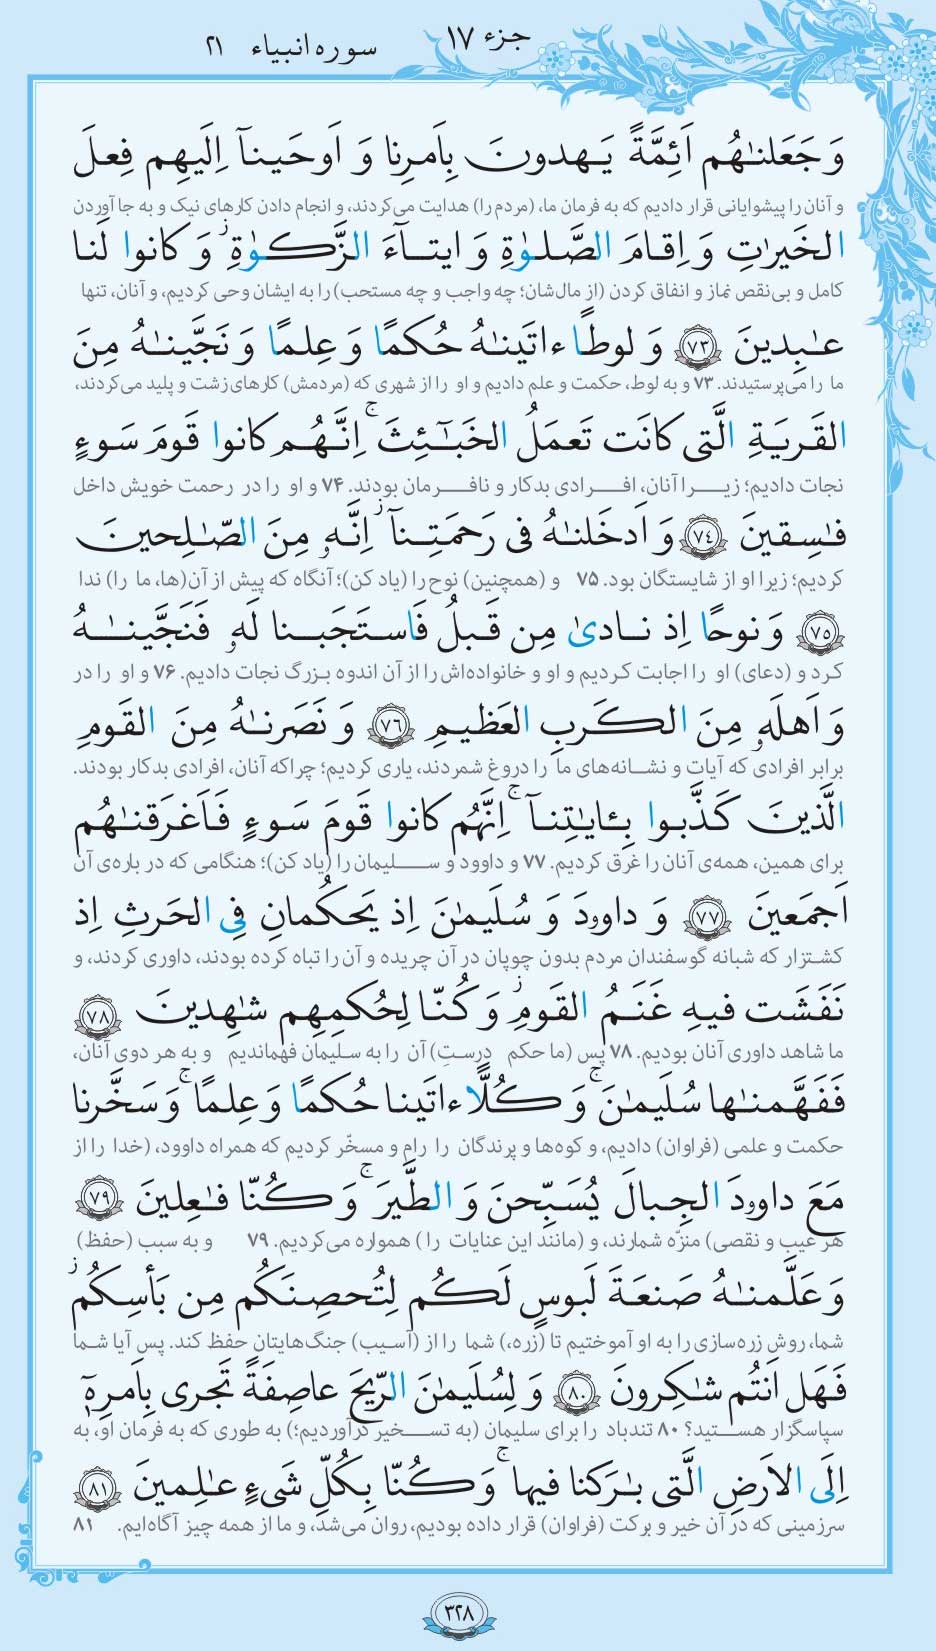 جزء ۱۷
سوره انبیاء ۲۱
وَ جَعَلنٰهُم اَئِمَّةً یَهدونَ بِاَمرِنا وَ اَوحَینآ اِلَیهِم فِعلَ
و آنان را پیشوایانی قرار دادیم که به فرمان ما، (مردم را) هدایت می‌کردند، و انجام دادن کارهای نیک و به جا آوردن
الخَیرٰتِ وَ اِقامَ الصَّلوٰةِ وَ ایتآءَ الزَّکوٰةِ ۖ وَ کانوا لَنا
کامل و بی‌نقص نماز و انفاق کردن (از مال‌شان؛ چه واجب و چه مستحب) را به ایشان وحی کردیم، و آنان، تنها
عٰبِدینَ ﴿۷۳﴾ وَ لوطًا ءاتَینٰهُ حُکمًا وَ عِلمًا وَ نَجَّینٰهُ مِنَ
ما را می‌پرستیدند. ۷۳ و به لوط، حکمت و علم دادیم و او را از شهری که (مردمش) کارهای زشت و پلید می‌کردند،
القَریَةِ الَّتی کانَت تَعمَلُ الخَبٰٓئِثَ ۚ اِنَّهُم کانوا قَومَ سَوءٍ
نجات دادیم؛ زیرا آنان، افرادی بدکار و نافرمان بودند. ۷۴ و او را در رحمت خویش داخل
فٰسِقینَ ﴿۷۴﴾ وَ اَدخَلنٰهُ فی رَحمَتِنآ ۖ اِنَّهٗ مِنَ الصّٰلِحینَ
کردیم؛ زیرا او از شایستگان بود. ۷۵ و (همچنین) نوح را (یاد کن)؛ آنگاه که پیش از آن(ها، ما را) ندا
﴿۷۵﴾ وَ نوحًا اِذ نادیٰ مِن قَبلُ فَاستَجَبنا لَهٗ فَنَجَّینٰهُ
کرد و (دعای) او را اجابت کردیم و او و خانواده‌اش را از آن اندوه بزرگ نجات دادیم. ۷۶ و او را در
وَ اَهلَهٗ مِنَ الکَربِ العَظیمِ ﴿۷۶﴾ وَ نَصَرنٰهُ مِنَ القَومِ
برابر افرادی که آیات و نشانه‌های ما را دروغ شمردند، یاری کردیم؛ چراکه آنان، افرادی بدکار بودند.
الَّذینَ کَذَّبوا بِـٔایٰتِنآ ۚ اِنَّهُم کانوا قَومَ سَوءٍ فَاَغرَقنٰهُم
برای همین، همه‌ی آنان را غرق کردیم. ۷۷ و داوود و سلیمان را (یاد کن)؛ هنگامی که درباره‌ی آن
اَجمَعینَ ﴿۷۷﴾ وَ داوودَ وَ سُلَیمٰنَ اِذ یَحکُمانِ فِی الحَرثِ اِذ
کشتزار که شبانه گوسفندان مردم بدون چوپان در آن چریده و آن را تباه کرده بودند، داوری کردند، و
نَفَشَت فیهِ غَنَمُ القَومِ ۖ وَ کُنّا لِحُکمِهِم شٰهِدینَ ﴿۷۸﴾
ما شاهد داوری آنان بودیم. ۷۸ پس (ما حکم درستِ) آن را به سلیمان فهماندیم و به هر دوی آنان،
فَفَهَّمنٰها سُلَیمٰنَ ۚ وَ کُلًّا ءاتَینا حُکمًا وَ عِلمًا ۚ وَ سَخَّرنا
حکمت و علمی (فراوان) دادیم، و کوه‌ها و پرندگان را رام و مسخّر کردیم که همراه داوود، (خدا را از
مَعَ داوودَ الجِبالَ یُسَبِّحنَ وَ الطَّیرَ ۚ وَ کُنّا فٰعِلینَ ﴿۷۹﴾
هر عیب و نقصی) منزّه شمارند، و (مانند این عنایات را) همواره می‌کردیم. ۷۹ و به سبب (حفظ)
وَ عَلَّمنٰهُ صَنعَةَ لَبوسٍ لَکُم لِتُحصِنَکُم مِن بَأسِکُم ۖ
شما، روش زره‌سازی را به او آموختیم تا (زره،) شما را از (آسیب) جنگ‌هایتان حفظ کند. پس آیا شما
فَهَل اَنتُم شٰکِرونَ ﴿۸۰﴾ وَ لِسُلَیمٰنَ الرّیحَ عاصِفَةً تَجری بِاَمرِهٖٓ
سپاسگزار هستید؟ ۸۰ تندباد را برای سلیمان (به تسخیر درآوردیم؛) به طوری که به فرمان او، به
اِلَی الاَرضِ الَّتی بٰرَکنا فیها ۚ وَ کُنّا بِکُلِّ شَیءٍ عٰلِمینَ ﴿۸۱﴾
سرزمینی که در آن خیر و برکت (فراوان) قرار داده بودیم، روان می‌شد، و ما از همه چیز آگاه‌ایم. ۸۱
۳۲۸